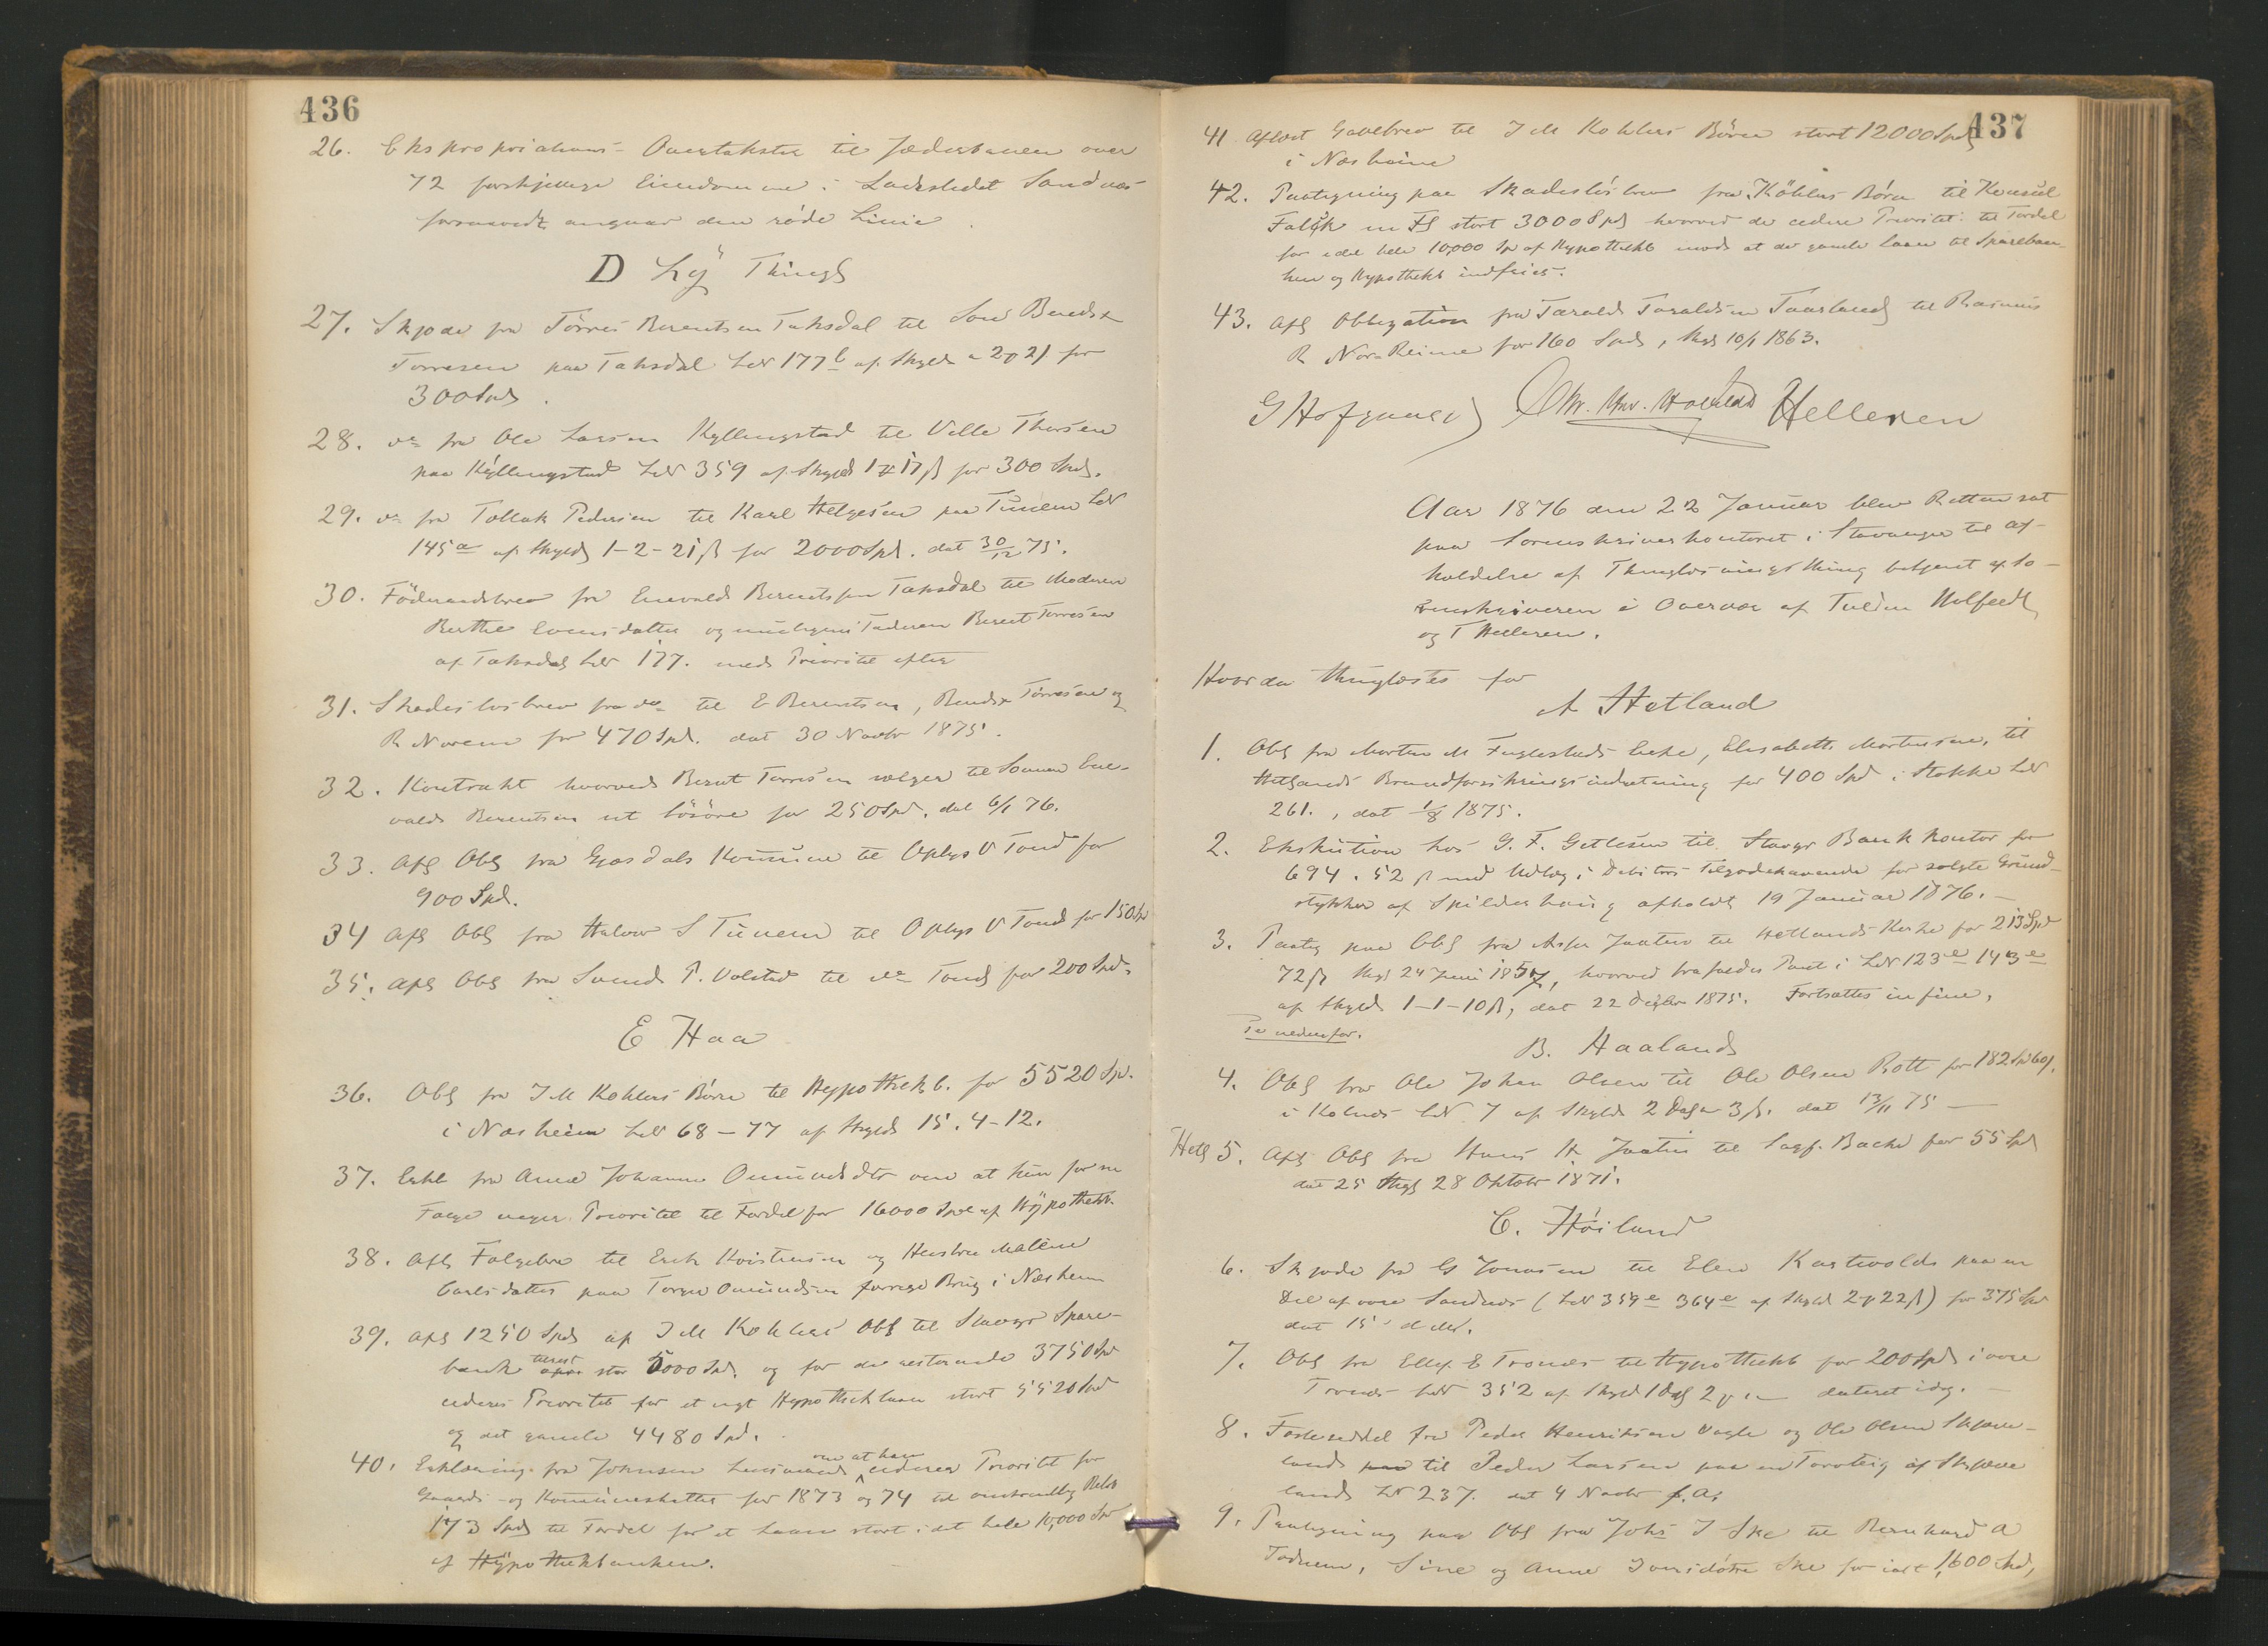 436
26. Expropriations-Overtakster til Jæderbanen over
72 forskjellige Eiendomme i Ladestedet Sandnæs
forsaavidt angaar den røde Linie.
D Lÿ Thingl
27. Skjøde fra Tørres Berentsen Taksdal til Søn Bendix
Torresen paa Taksdal LNr 177 b af Skyld 2 21 for
300 Spd.
28. do fra Ole Larsen Kyllingstad til Ville Thorsen
paa Kyllingstad LNr 359 af Skyld 1 17 ß for 300 Spd.
29. do fra Tollak Pedersen til Karl Helgesen paa Tunem LNr
145 a af Skyld 1-2-21 ß for 2000 Spd. dat 30/12 75.
30. Föderaadsbrev fra Enevald Berentsen Taksdal til Moderen
Berthe Evensdatter og Faderen Berent Torresen
af Taksdal LNr 177. med Prioritet efter
31. Skadesløsbrev fra do til E Berentsen, Bendix Tørresen og
R Norem for 470 Spd. dat 30 Novbr 1875.
32. Kontrakt hvorved Berent Torresen sælger til Sønnen Ene-
vald Berentsen sit lösöre for 250 Spd. dat 6/1 76.
33. Afl Obl fra Gjesdals Kommune til Oplys V Fond for
900 Spd.
34 Afl Obl fra Halvor S Tunem til Oplys V Fond for 150 Spd
35. Afl Obl fra Svend P. Volstad til do Fond for 200 Spd.
E Haa
36. Obl fra J M Kohlers Börn til Hypothekb. for 5520 Sp.
i Næsheim LNr 68-77 af Skyld 15.4-12.
37. Erkl fra Anne Johanne Omundsdtr om at hun for sin
Folge viger Prioritet til Fordel for 16000 Spd af Hypothekb.
38. Afl Folgebrev til Erik Kristensen og Hustru Malene
Carlsdatter paa Torger Omundsen forrige Brug i Næsheim
39. Afl 1250 Spd af J M Kohlers Obl til Stavgr Spare-
bank tilrest stor 5000 Spd. og for de resterende 3750 Spd
cederes Prioritet for et nyt Hypotheklaan stort 5520 Spd
og det gamle 4480 Spd.
40. Erklæring fra Johnsen Lensmand om at han cederer Prioritet for
Gaards- og Kommuneskatter for 1873 og 74 til omtrentlig Beløb
173 Spd til Fordel for et Laan stort i det hele 10,000 Spd
af Hypothekbanken.
437
41 Aflæst Gavebrev til J M Kohlers Börn stort 12000 Spd
i Næsheim
42. Paategning paa Skadesløsbrev fra Köhlers Börn til Konsul
Falck stort 3000 Spd hvorved de cedere Prioritet til Fordel
for i det hele 10,000 Sp af Hypothekb mod at de gamle Laan til Spareban-
ken og Hypothekb indfries.
43. Afl Obligation fra Tarald Taraldsen Taarland til Rasmus
R Nord Reime for 160 Spd, thgl 10/1 1863.
G Hofgaard Helleren
Aar 1876 den 22 Januar blev Retten sat
paa Sorenskriverkontoret i Stavanger til af-
holdelse af Thinglæsningsthing betjent af So-
renskriveren i Overvær af
og T Helleren.
Hvor da thinglæstes for
A Hetland
1. Obl fra Morten M Fuglestads Enke, Elisabeth Mortensen, til
Hetlands Brandforsikringsindretning for 400 Spd i Stokke LNr
261., dat 1/8 1875.
2. Exekution hos G. F. Getlesen til Stavgr Bankkontor for
694. 52 ß med Udlæg i Debitors Tilgodehavende for solgte Grund-
stykker af Spilderhaug afholdt 19 Januar 1876.
3. Paateg paa Obl fra Asser Jaatten til Hetlands Kirke for 213 Spd
72 ß thgl 24 Juni 1857, hvorved frafaldes Pant i LNr 123 e 143 e
af Skyld 1-1-10 ß, dat 22 Decbr 1875. Fortsættes in fine,
Se nedenfor.
B. Haaland
4. Obl fra Ole Johan Olsen til Ole Olsen Rott for 182 Spd 60 ß.
i Kolnes LNr 7 af Skyld 2 Dal 3 ß. dat 13/11 75 —
Hetl 5. Afl Obl fra Hans H Jaatten til Sagf. Backe for 55 Spd
dat 25 thgl 28 Oktobr 1871.
C. Höiland
6. Skjøde fra G Jonasen til Elen Kastvold paa en
Del af øvre Sandnæs (LNr 359 e 364 e af Skyld 2 22 ß) for 375 Spd
dat 15 d. Md.
7. Obl fra Ellef E Trones til Hypothekb for 200 Spd i øvre
Trones LNr 352 af Skyld 1 Dal 2 dateret idag. —
8. Fæsteseddel fra Peder Henriksen Vagle og Ole Olsen Skjæve-
land til Peder Larsen paa en Torvteig af Skjæve
land LNr 237. dat 4 Novbr f. A.
9. Paategning paa Obl fra Johs J Ske til Bernhard A
Todnem, Sine og Anne Ske for ialt 1,600 Spd,